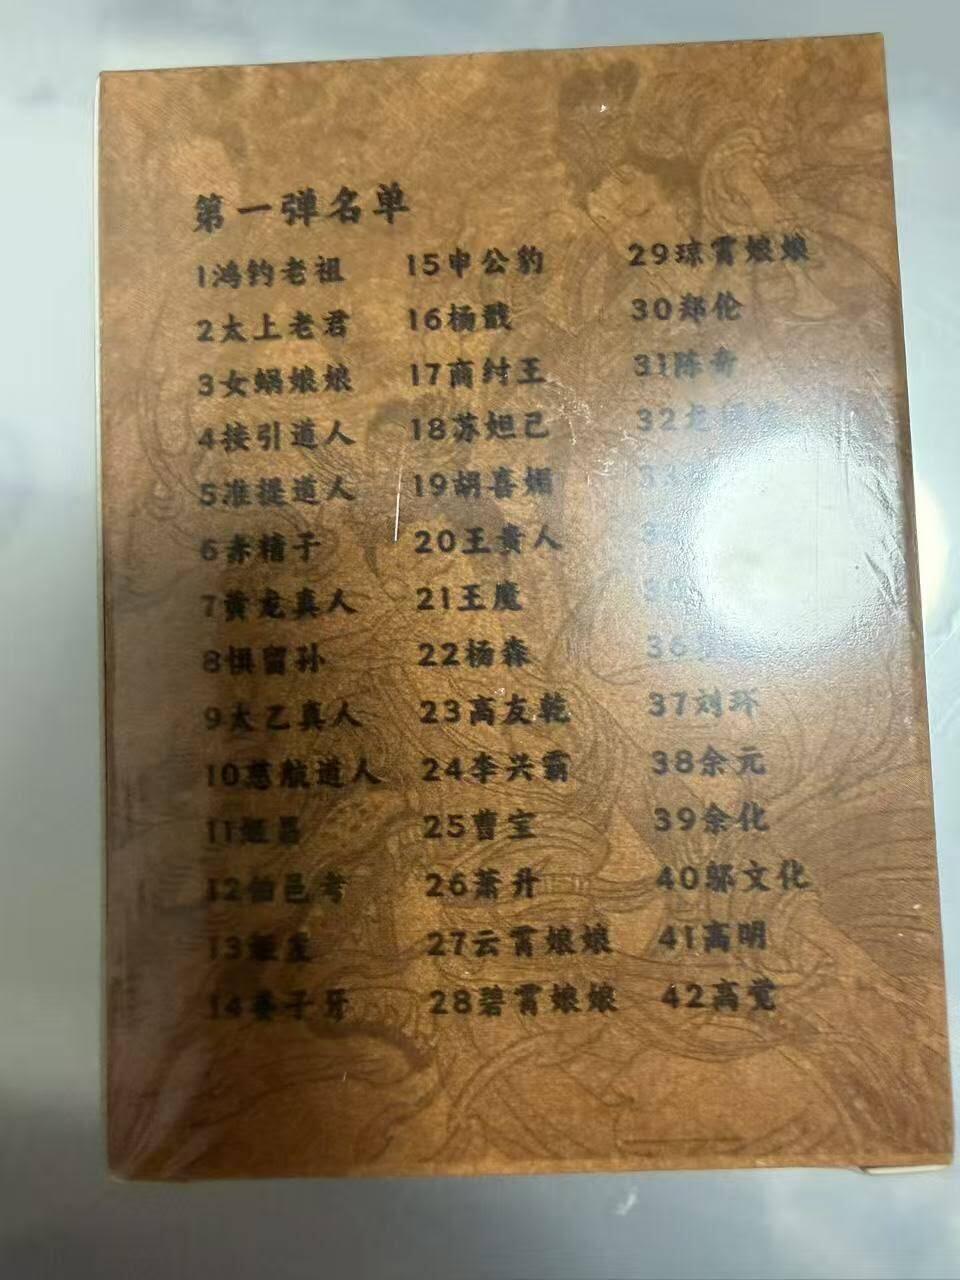 第一弹名单
1鸿钧老祖
2太上老君
3女娲娘娘
4接引道人
5准提道人
6赤精子
7黄龙真人
8惧留孙
9太乙真人
10慈航道人
11姬昌
12伯邑考
13姬发
14姜子牙
15申公豹
16杨戬
17商纣王
18苏妲己
19胡喜媚
20王贵人
21王魔
22杨森
23高友乾
24李兴霸
25曹宝
26萧升
27云霄娘娘
28碧霄娘娘
29琼霄娘娘
30郑伦
31陈奇
32
33
36
37刘环
38余元
39余化
40邬文化
41高明
42高觉